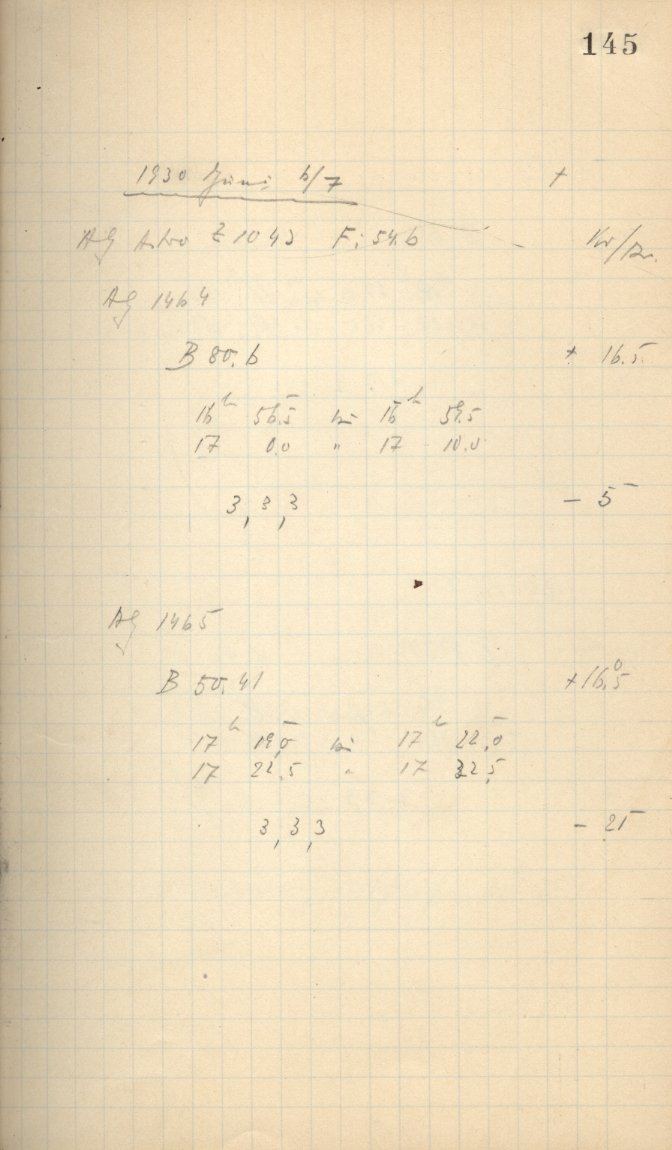 145
1930 Juni 6/7 +
AG Astro Z 1043 F: 54.6 Kr/
AG 1464
B 80.6 + 16.5
16h 56.5 bis 16h 59.5
17 0.0 " 17 10.0
3, 3, 3 - 5
AG 1465
B 50.41 + 16.5
17h 19.5 bis 17h 22.0
17 22.5 " 17 32.5
3, 3, 3